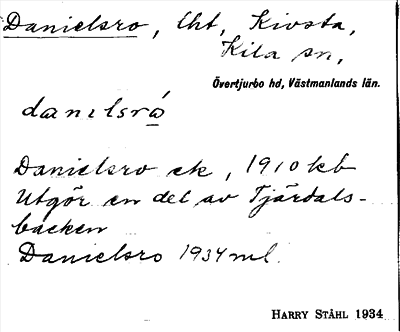 Danielsro, lht, Kivsta,
Kila sn,
Övertjurbo hd, Västmanlands län.
danılsrò
Danielsro ek, 1910 kb
Utgör en del av Tjärdals-
backen
Danielsro 1934 ml.
HARRY STÅHL 1934